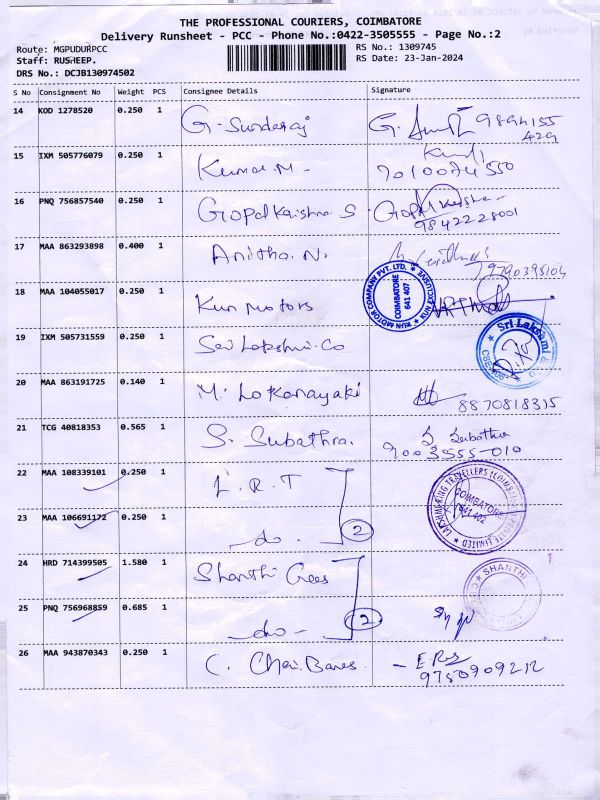 THE PROFESSIONAL COURIERS, COIMBATORE
Delivery Runsheet - PCC - Phone No.:0422-3505555 - Page No.:2
Route: MGPUDURPCC RS No.: 1309745
Staff: RUSHEEP. RS Date: 23-Jan-2024
DRS No.: DCJB130974502
S No Consignment No Weight PCS Consignee Details Signature
14 KOD 1278520 0.250 1 G. Sunderaj G. 9894155
429
15 IXM 505776079 0.250 1 Kumar.M - 7010074550
16 PNQ 756857540 0.250 1 Gopalkrishna S
9842228001
17 MAA 863293898 0.400 1 Anitha.N. 9790398104
18 MAA 104055017 0.250 1 Kun Motors
KUN MOTOR COMPANY PVT. LTD. KUN EXCLUSIVE
COIMBATORE
641 407
19 IXM 505731559 0.250 1 Sri Lakshmi.Co
Sri Laksami
20 MAA 863191725 0.140 1 M. Lokanayaki 8870818315
21 TCG 40818353 0.565 1 S. Subathra. S Subathra
9003555-010
22 MAA 108339101 0.250 1 L.R.T
COIMBATORE
641 402
23 MAA 106691172 0.250 1 - do - 2
24 HRD 714399505 1.580 1 Shanthi Gees
SHANTHI
25 PNQ 756968859 0.685 1 - do - 2
26 MAA 943870343 0.250 1 C.
9750909212